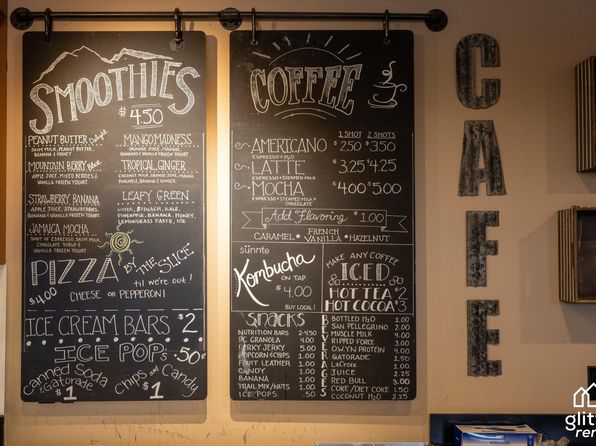 SMOOTHIES
$4.50
PEANUT BUTTER Delight
SKIM MILK, PEANUT BUTTER,
BANANA & HONEY
MOUNTAIN BERRY Blast
APPLE JUICE, MIXED BERRIES &
VANILLA FROZEN YOGURT
STRAWBERRY BANANA
APPLE JUICE, STRAWBERRIES,
BANANA &
VANILLA FROZEN YOGURT
JAMAICA MOCHA
SHOT OF ESPRESSO, SKIM MILK,
CHOCOLATE SYRUP &
VANILLA FROZEN YOGURT
MANGO MADNESS
ORANGE JUICE, MANGO,
BANANAS & VANILLA FROZEN YOGURT
TROPICAL GINGER
ORANGE JUICE, MANGO
PINEAPPLE, BANANA & GINGER
LEAFY GREEN
WATER, SPINACH, KALE,
PINEAPPLE, BANANA, HONEY,
LEMONGRASS PASTE, ICE
PIZZA BY THE SLICE
$4.00 til we're out!
CHEESE OR PEPPERONI
ICE CREAM BARS $2
ICE POPS .50¢
Canned Soda
& Gatorade
$1
Chips and Candy
$1
COFFEE
1 SHOT 2 SHOTS
AMERICANO $2.50 $3.50
ESPRESSO + H2O
LATTE $3.25 $4.25
ESPRESSO + STEAMED MILK
MOCHA $4.00 $5.00
ESPRESSO + STEAMED MILK +
CHOCOLATE
Add Flavoring $1.00
CARAMEL • FRENCH VANILLA • HAZELNUT
sünnte
Kombucha
ON TAP
$4.00
BUY LOCAL!
MAKE ANY COFFEE
ICED
HOT TEA $2
HOT COCOA $3
SNACKS
NUTRITION BARS 2-4.50
PC GRANOLA 4.00
JERKY 5.00
POPCORN & CHIPS 1.00
FRUIT LEATHER 1.00
CANDY 1.00
BANANA 1.00
TRAIL MIX/NUTS 1.00
ICE POPS .50
BEVERAGES
BOTTLED H2O 1.00
SAN PELLEGRINO 2.00
MUSCLE MILK 4.00
RIPPED FORCE 3.00
OWYN PROTEIN 4.00
GATORADE 1.50
LaCroix 1.00
JUICE 2.25
RED BULL 3.00
COKE/DIET COKE 1.50
COCONUT H2O 2.25
CAFE